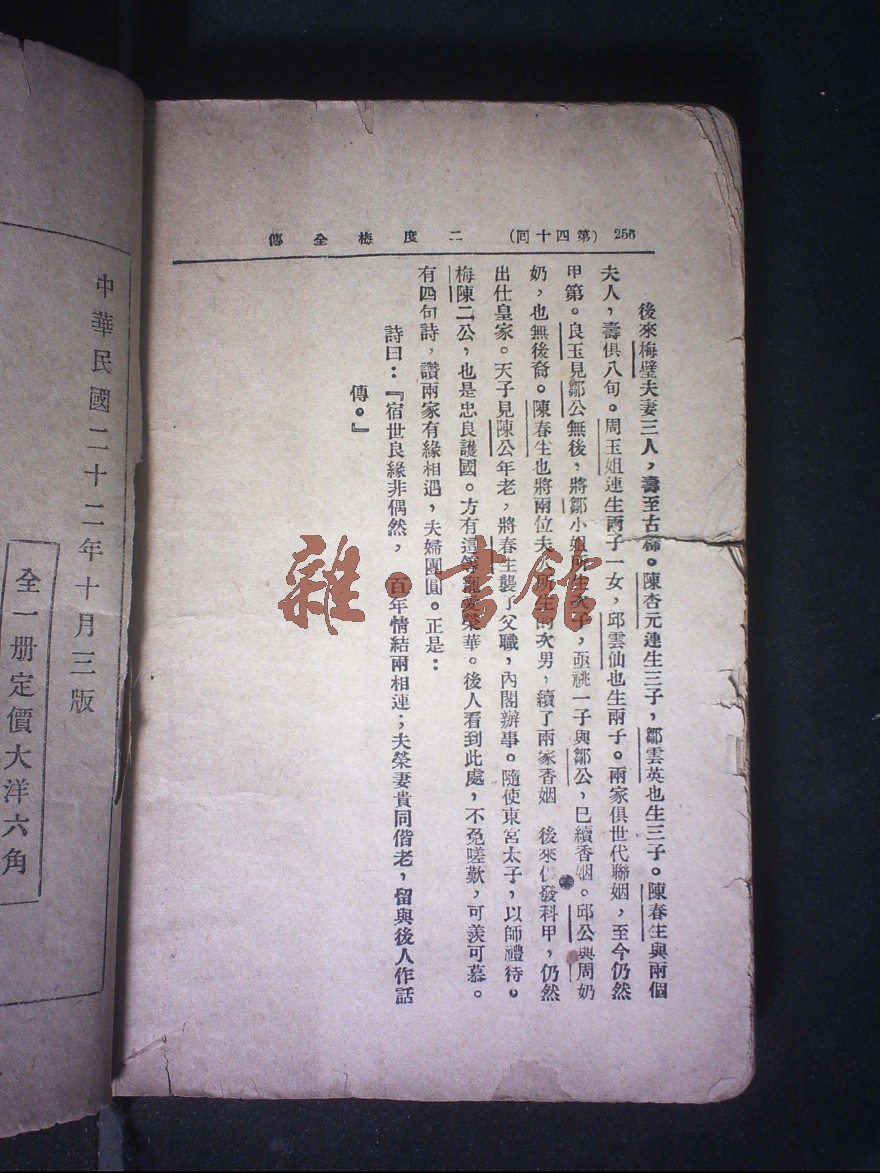 256 (第四十回) 二度梅全傳
後來梅璧夫妻三人，壽至古稀。陳杏元連生三子，鄒雲英也生三子。陳春生與兩個
夫人，壽俱八旬。周玉姐連生兩子一女，邱雲仙也生兩子。兩家俱世代聯姻，至今仍然
甲第。良玉見鄒公無後，將鄒小姐所生次子，承祧一子與鄒公，已續香烟。邱公與周奶
奶，也無後裔。陳春生也將兩位夫人所生的次男，續了兩家香姻　後來俱發科甲，仍然
出仕皇家。天子見陳公年老，將春生襲了父職，內閣辦事。隨使東宮太子，以師禮待。
梅陳二公，也是忠良護國。方有這等榮華。後人看到此處，不免嗟歎，可羨可慕。
有四句詩，讚兩家有緣相遇，夫婦團圓。正是：
詩曰：『宿世良緣非偶然，百年情結兩相連；夫榮妻貴同偕老，留與後人作話
傳。』
中華民國二十二年十月三版
全一册定價大洋六角
雜·書館